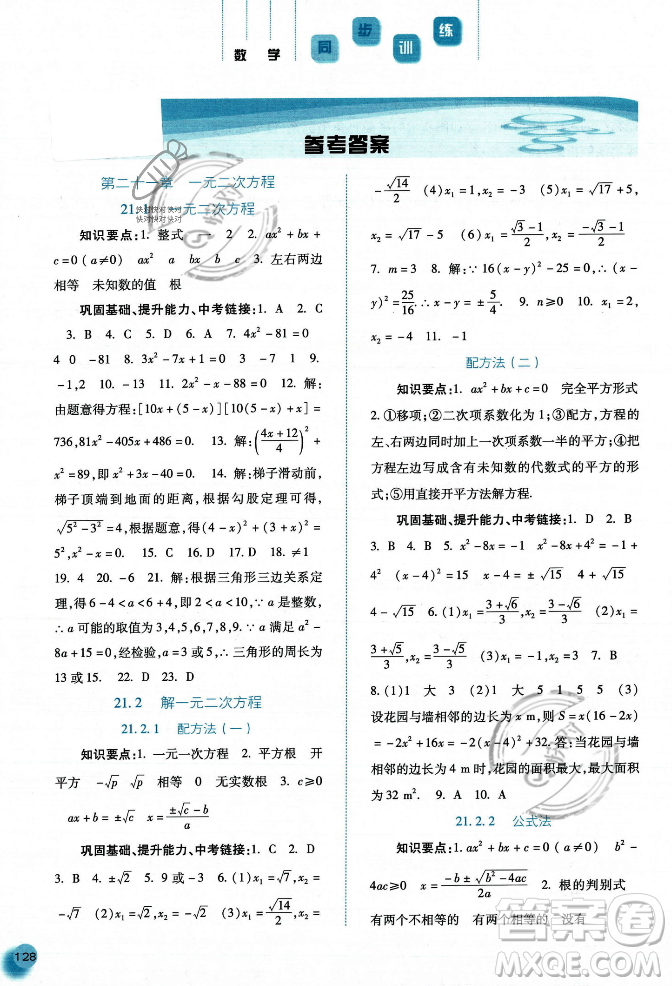 数学 同步训练
参考答案
第二十一章 一元二次方程
21.1 一元二次方程
快对快对快对
快对快对快对
知识要点:1. 整式 一 2 2. ax²+bx+
c=0(a≠0) ax² a bx b c 3. 左右两边
相等 未知数的值 根
巩固基础、提升能力、中考链接:1. A 2. C
3. B 4. C 5. A 6. A 7. 4x²-81=0
4 0 -81 8. 3x²-7x+1=0 3 -7 1 9.
-1,12 10. -17 11. x²-x-20=0 12. 解:
由题意得方程:[10x+(5-x)][10(5-x)+x]=
736,81x²-405x+486=0 13. 解:((4x+12)/4)²+
x²=89,即x²+3x-40=0 14. 解:梯子滑动前,
梯子顶端到地面的距离,根据勾股定理可得,
√(5²-3²)=4,根据题意,得(4-x)²+(3+x)²=
5²,x²-x=0 15. C 16. B 17. 1 18. ≠±1
19. 4 20. -6 21. 解:根据三角形三边关系定
理,得6-4<a<6+4,即2<a<10,∵a是整数,
∴a可能的取值为3,4,5,6,7,8,9.∵a²-
8a+15=0,∴a=3或a=5,∴三角形的周长为
13或15. 22. D 23. D
21.2 解一元二次方程
21.2.1 配方法(一)
知识要点:1. 一元一次方程 2. 平方根 开
平方 -√p √p 相等 0 无实数根 3. c≥0
ax+b=±√c x=(±√c-b)/a
巩固基础、提升能力、中考链接:1. C 2. D
3. B 4. ±√2 5. 9或-7 6. (1)x₁=√7,x₂=
-√7 (2)x₁=2,x₂=-1 (3)x₁=√14/2,x₂=
-√14/2 (4)x₁=x₂=-3 (5)x₁=√17+5,
x₂=√17-5 (6)x₁=(√3-1)/2,x₂=(-√3-1)/2
7. m=3 8. 解:∵16(x-y)²-25=0,∴(x-
y)²=25/16,∴x-y=±5/4. 9. n≥0 10. x₁=2,
x₂=-4 11. -1
配方法(二)
知识要点:1. ax²+bx+c=0 完全平方形式
2. ①移项;②二次项系数化为1;③配方,方程的
左、右两边同时加上一次项系数一半的平方;④把
方程左边写成含有未知数的代数式的平方的形
式;⑤用直接开平方法解方程.
巩固基础、提升能力、中考链接:1. D 2. B
3. B 4. B 5. x²-8x=-1 x²-8x+4²=-1+
4² (x-4)²=15 x-4=±√15 4+√15
4-√15 6. (1)x₁=(3+√6)/3,x₂=(3-√6)/3 (2)x₁=
(3+√5)/3,x₂=(3-√5)/3 (3)x₁=3,x₂=1 7. B
8. (1)1 大 3 (2)1 大 5 (3)
设花园与墙相邻的边长为x m,则S=x(16-2x)=
-2x²+16x=-2(x-4)²+32. 答:当花园与墙
相邻的边长为4 m时,花园的面积最大,最大面积为
32 m². 9. A 10. A
21.2.2 公式法
知识要点:1. ax²+bx+c=0(a≠0) b²-
4ac≥0 x=(-b±√(b²-4ac))/2a 2. 根的判别式
有两个不相等的 有两个相等的 没有
128
答案圈
MXQE.COM